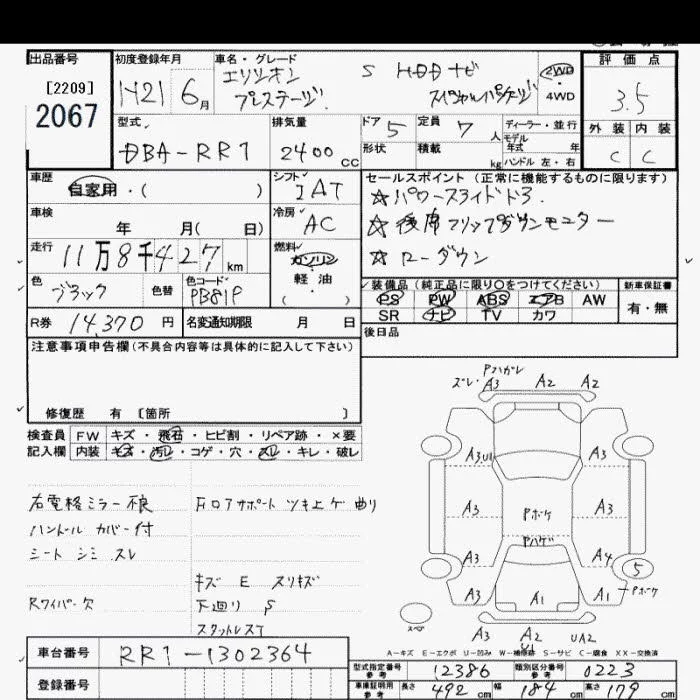 出品番号 初度登録年月 車名・グレード 評価点
[2209] エリシオン S HDDナビ 2WD
2067 H21 6月 プレステージ スペシャルパッケージ 4WD 3.5
型式 排気量 ドア 5 定員 7人 ディーラー・並行 外装 内装
DBA-RR1 2400cc 形状 積載 kg モデル年式 年 ハンドル 左・右 C C
車歴 自家用・( ) シフト IAT セールスポイント(正常に機能するものに限ります)
☆パワースライドドア
車検 年 月( 日) 冷房 AC ☆後席フリップダウンモニター
走行 11万8千427km 燃料 ガソリン ☆ローダウン
軽油
色 ブラック 色替 色コード PB81P 装備品(純正品に限り○をつけてください) 新車保証書
( ) PS PW ABS エアB AW 有・無
R券 14,370円 名変通知期限 月 日 SR ナビ TV カワ
注意事項申告欄(不具合内容等は具体的に記入して下さい) 後日品
修復歴 有 [箇所 ]
検査員 FW キズ・飛石・ヒビ割・リペア跡・×要
記入欄 内装 キズ・汚レ・コゲ・穴・スレ・キレ・破レ
右電格ミラー不良 Fロアサポート ツキ上ゲ 曲リ
ハンドル カバー付
シート シミ スレ
キズ E スリキズ
Rワイパー欠 下廻り S
スタットレスT
Pハガレ
ズレ・A3 A2 A2
A3 U1 A3
A3 Pボケ A3
Pハゲ
A3 A4 5
A3 A1 A1 Pボケ
スペア
A3 A2 U1 UA2
A-キズ E-エクボ U-凹み W-補修跡 S-サビ C-腐食 XX-交換済
車台番号 RR1-1302364
型式指定番号 参考 12386 類別区分番号 参考 0223
登録番号 車庫証明用 参考 長さ 492cm 幅 184cm 高さ 179cm